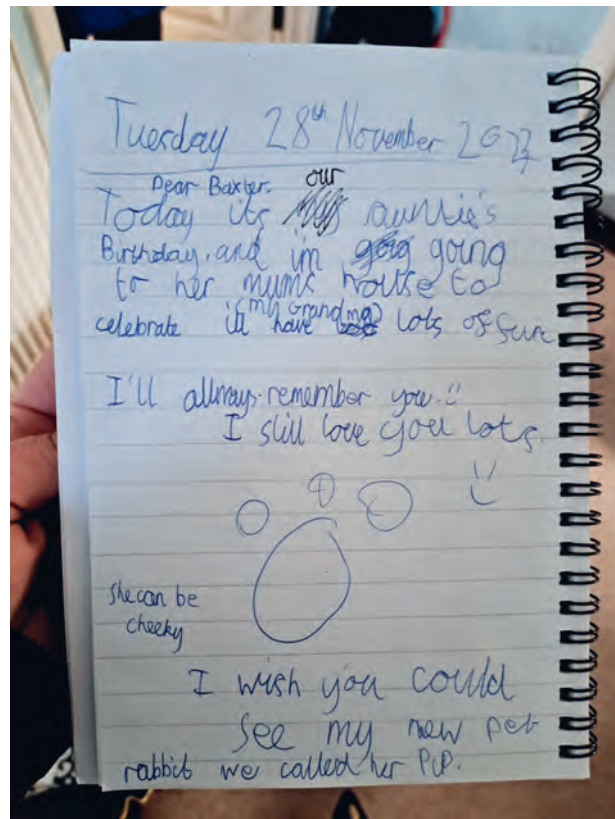 Tuesday 28th November 2023
Dear Baxter.
Today its our auntie's
Birthday. and im going
to her mums house to
(my grandma)
celebrate ill have lots of fun
I'll allways remember you. :)
I still love you lots.
she can be
cheeky
I wish you could
see my new pet
rabbit we called her PiP.